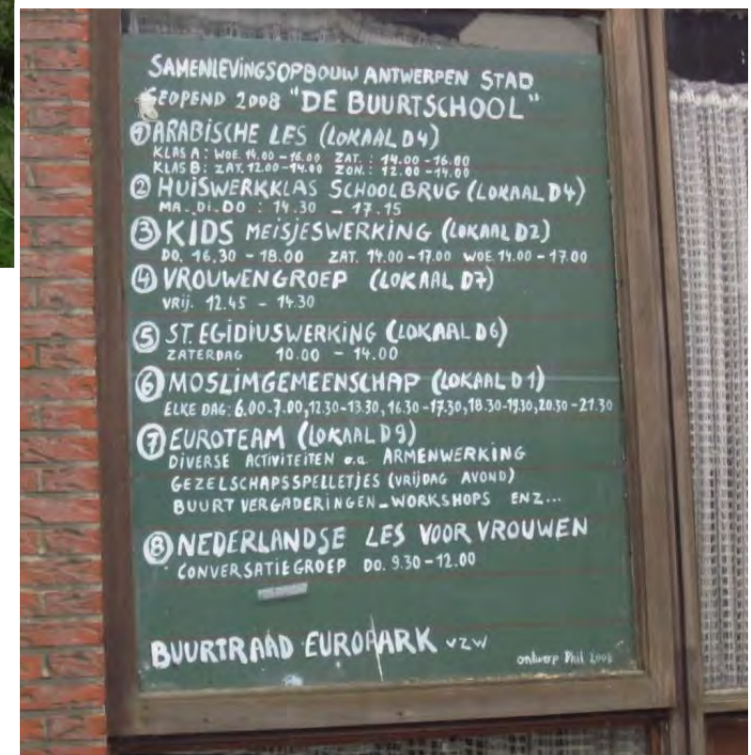 SAMENLEVINGSOPBOUW ANTWERPEN STAD
GEOPEND 2008 "DE BUURTSCHOOL"
① ARABISCHE LES (LOKAAL D4)
KLAS A: WOE. 14.00 - 16.00 ZAT.: 14.00 - 16.00
KLAS B: ZAT. 12.00 - 14.00 ZON.: 12.00 - 14.00
② HUISWERKKLAS SCHOOLBRUG (LOKAAL D4)
MA. DI. DO : 14.30 - 17.15
③ KIDS MEISJESWERKING (LOKAAL D2)
DO. 16.30 - 18.00 ZAT. 14.00 - 17.00 WOE 14.00 - 17.00
④ VROUWENGROEP (LOKAAL D7)
VRIJ. 12.45 - 14.30
⑤ ST. EGIDIUSWERKING (LOKAAL D6)
ZATERDAG 10.00 - 14.00
⑥ MOSLIMGEMEENSCHAP (LOKAAL D1)
ELKE DAG: 6.00-7.00, 12.30-13.30, 16.30-17.30, 18.30-19.30, 20.30-21.30
⑦ EUROTEAM (LOKAAL D9)
DIVERSE ACTIVITEITEN o.a. ARMENWERKING
GEZELSCHAPSSPELLETJES (VRIJDAG AVOND)
BUURTVERGADERINGEN - WORKSHOPS ENZ...
⑧ NEDERLANDSE LES VOOR VROUWEN
CONVERSATIEGROEP DO. 9.30 - 12.00
BUURTRAAD EUROPARK vzw
ontwerp Phil 2008